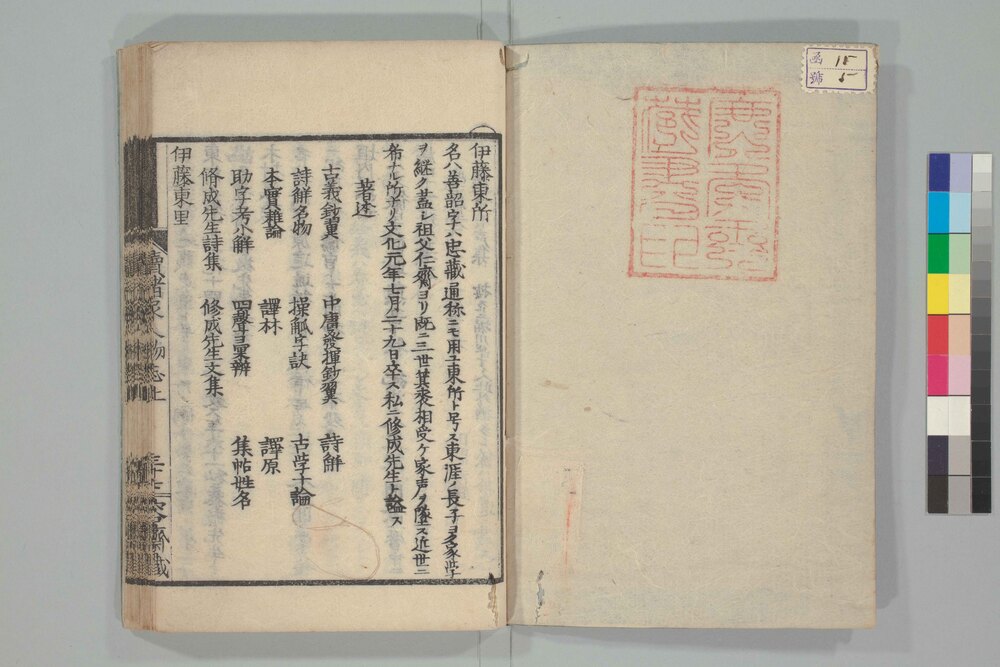 函 15
號 5
伊藤東所
名ハ善韶字ハ忠藏通称ニモ用ユ東所ト号ス東涯ノ長子ヨク家学
ヲ継ク蓋シ祖父仁齋ヨリ既ニ三世其業相受ケ家声ヲ墜ス近世ニ
希ナル所ナリ文化元年七月二十九日卒ス私ニ修成先生ト謚ス
著述
古義鈔翼 中庸發揮鈔翼 詩解
詩解名物 操觚字訣 古学十論
本實雜論 譯林 譯原
助字考小解 四聲彙辨 集帖姓名
脩成先生詩集 修成先生文集
伊藤東里
續諸家人物志上